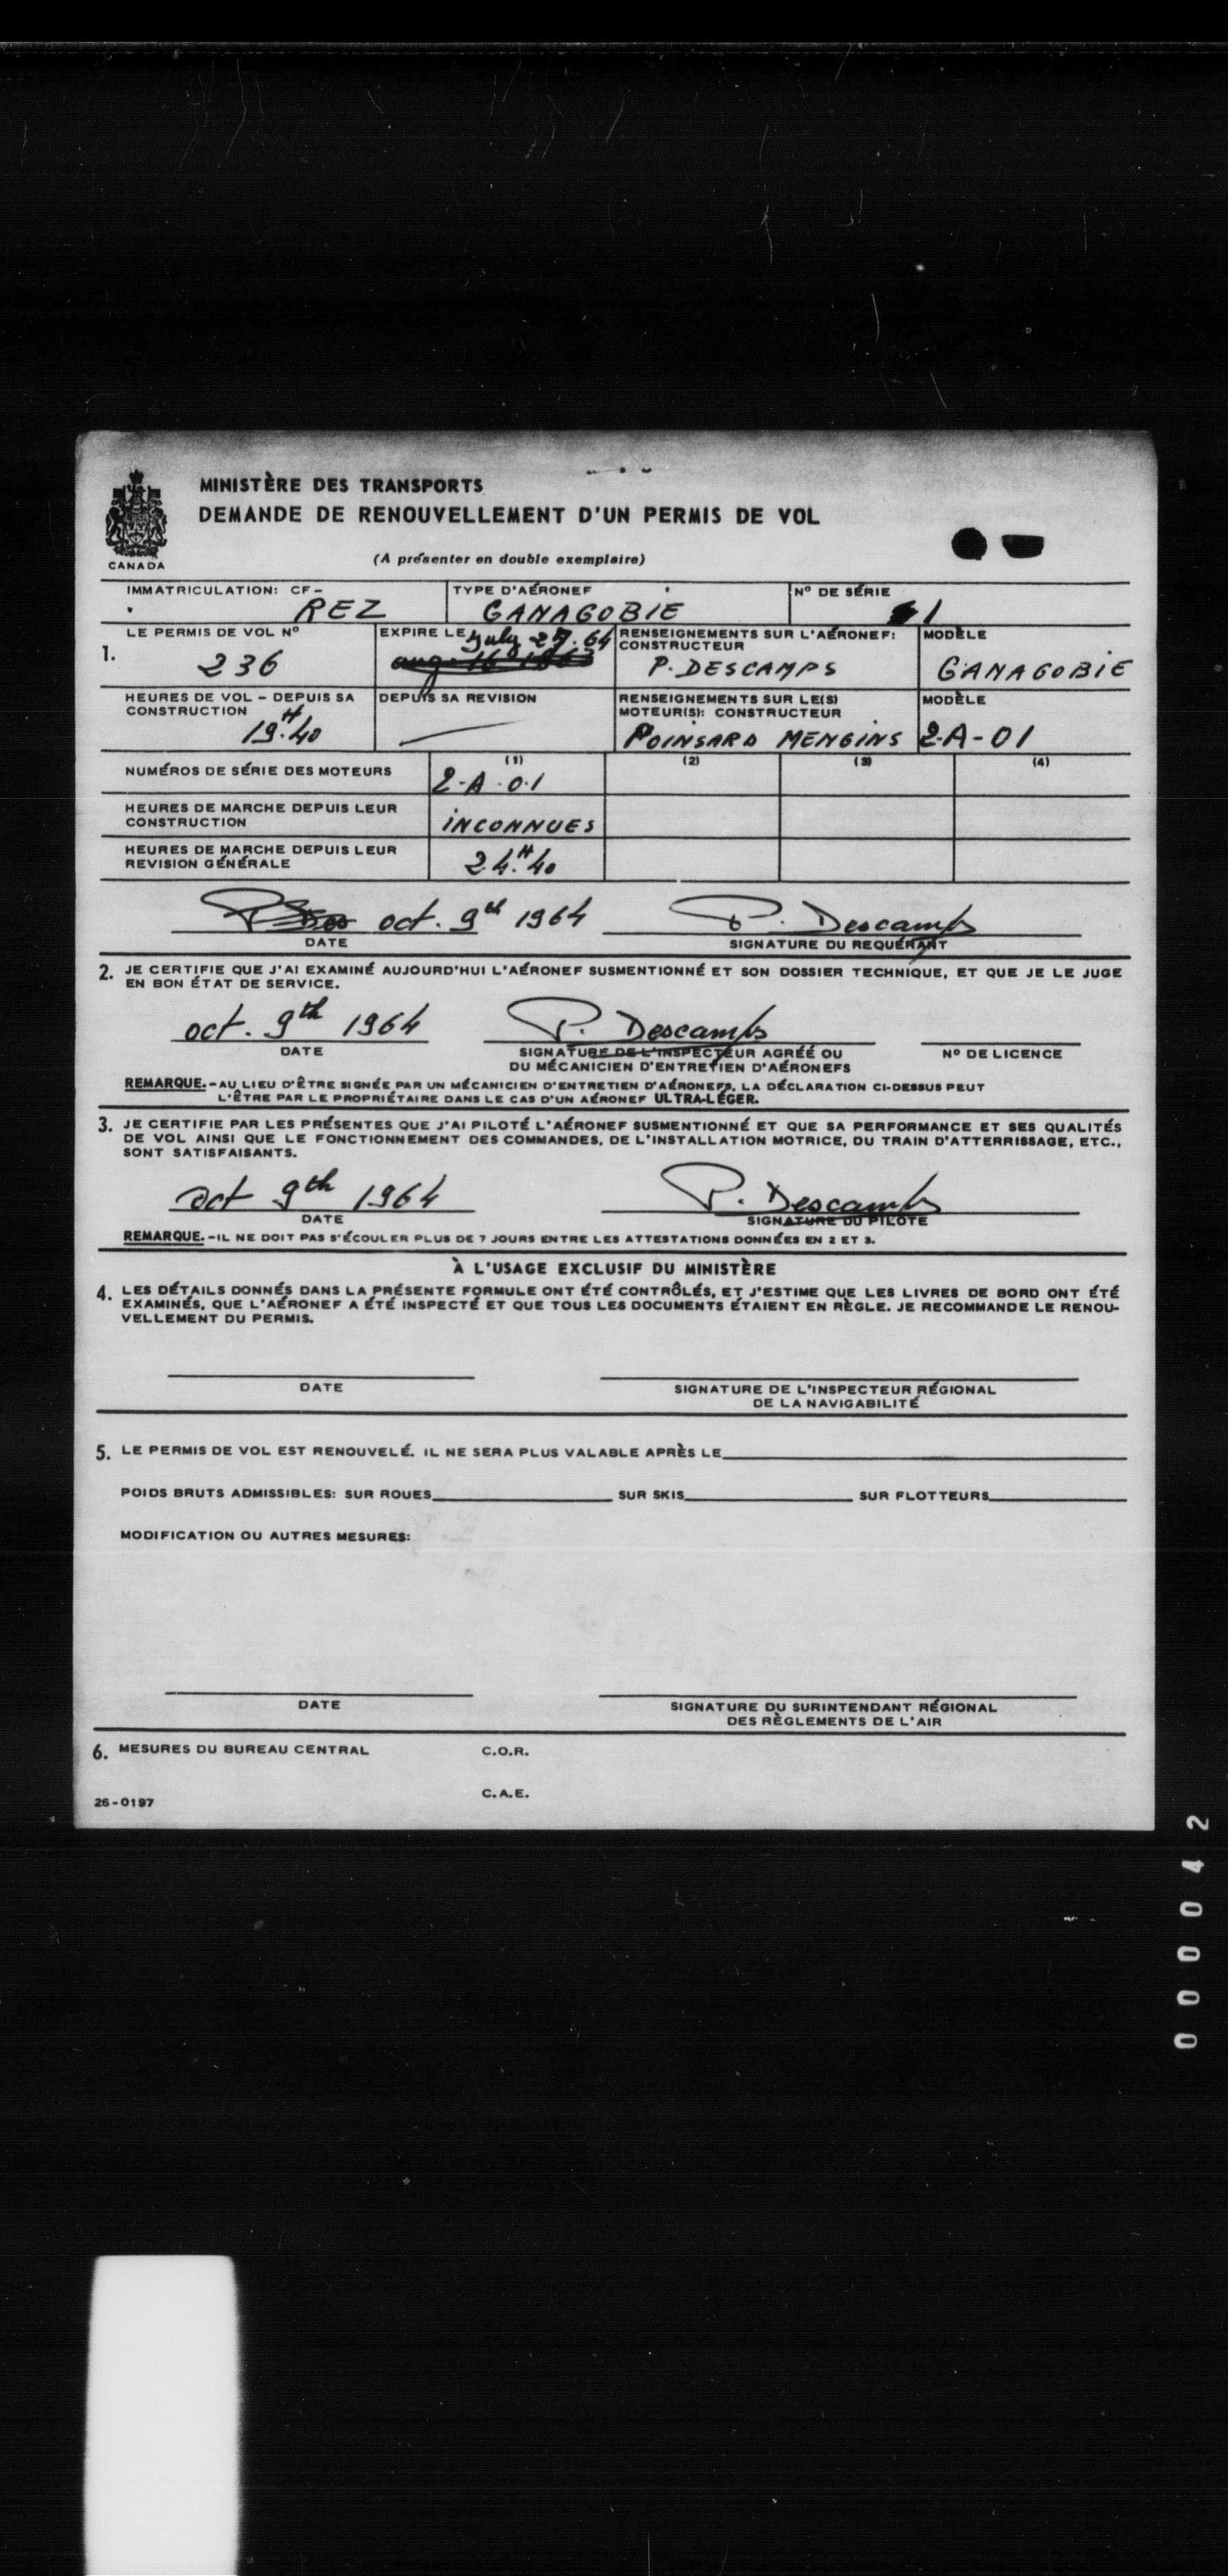 MINISTÈRE DES TRANSPORTS
DEMANDE DE RENOUVELLEMENT D'UN PERMIS DE VOL
CANADA
(A présenter en double exemplaire)
IMMATRICULATION: CF- REZ
TYPE D'AÉRONEF GANAGOBIE
Nº DE SÉRIE 1
1.
LE PERMIS DE VOL Nº 236
EXPIRE LE July 27. 64
aug. 16 1963
RENSEIGNEMENTS SUR L'AÉRONEF:
CONSTRUCTEUR
P. DESCAMPS
MODÈLE
GANAGOBIE
HEURES DE VOL - DEPUIS SA
CONSTRUCTION
19.H40
DEPUIS SA REVISION
RENSEIGNEMENTS SUR LE(S)
MOTEUR(S): CONSTRUCTEUR
POINSARD MENGINS
MODÈLE
2-A-01
(1) (2) (3) (4)
NUMÉROS DE SÉRIE DES MOTEURS 2-A.0.1
HEURES DE MARCHE DEPUIS LEUR
CONSTRUCTION INCONNUES
HEURES DE MARCHE DEPUIS LEUR
REVISION GÉNÉRALE 24.H40
oct. 9th 1964 P. Descamps
DATE SIGNATURE DU REQUÉRANT
2. JE CERTIFIE QUE J'AI EXAMINÉ AUJOURD'HUI L'AÉRONEF SUSMENTIONNÉ ET SON DOSSIER TECHNIQUE, ET QUE JE LE JUGE
EN BON ÉTAT DE SERVICE.
oct. 9th 1964 P. Descamps
DATE SIGNATURE DE L'INSPECTEUR AGRÉÉ OU Nº DE LICENCE
DU MÉCANICIEN D'ENTRETIEN D'AÉRONEFS
REMARQUE.-AU LIEU D'ÊTRE SIGNÉE PAR UN MÉCANICIEN D'ENTRETIEN D'AÉRONEFS, LA DÉCLARATION CI-DESSUS PEUT
L'ÊTRE PAR LE PROPRIÉTAIRE DANS LE CAS D'UN AÉRONEF ULTRA-LÉGER.
3. JE CERTIFIE PAR LES PRÉSENTES QUE J'AI PILOTÉ L'AÉRONEF SUSMENTIONNÉ ET QUE SA PERFORMANCE ET SES QUALITÉS
DE VOL AINSI QUE LE FONCTIONNEMENT DES COMMANDES, DE L'INSTALLATION MOTRICE, DU TRAIN D'ATTERRISSAGE, ETC.,
SONT SATISFAISANTS.
Oct 9th 1964 P. Descamps
DATE SIGNATURE DU PILOTE
REMARQUE.-IL NE DOIT PAS S'ÉCOULER PLUS DE 7 JOURS ENTRE LES ATTESTATIONS DONNÉES EN 2 ET 3.
À L'USAGE EXCLUSIF DU MINISTÈRE
4. LES DÉTAILS DONNÉS DANS LA PRÉSENTE FORMULE ONT ÉTÉ CONTRÔLÉS, ET J'ESTIME QUE LES LIVRES DE BORD ONT ÉTÉ
EXAMINÉS, QUE L'AÉRONEF A ÉTÉ INSPECTÉ ET QUE TOUS LES DOCUMENTS ÉTAIENT EN RÈGLE. JE RECOMMANDE LE RENOU-
VELLEMENT DU PERMIS.
DATE SIGNATURE DE L'INSPECTEUR RÉGIONAL
DE LA NAVIGABILITÉ
5. LE PERMIS DE VOL EST RENOUVELÉ. IL NE SERA PLUS VALABLE APRÈS LE
POIDS BRUTS ADMISSIBLES: SUR ROUES SUR SKIS SUR FLOTTEURS
MODIFICATION OU AUTRES MESURES:
DATE SIGNATURE DU SURINTENDANT RÉGIONAL
DES RÈGLEMENTS DE L'AIR
6. MESURES DU BUREAU CENTRAL C.O.R.
C.A.E.
26-0197
000042